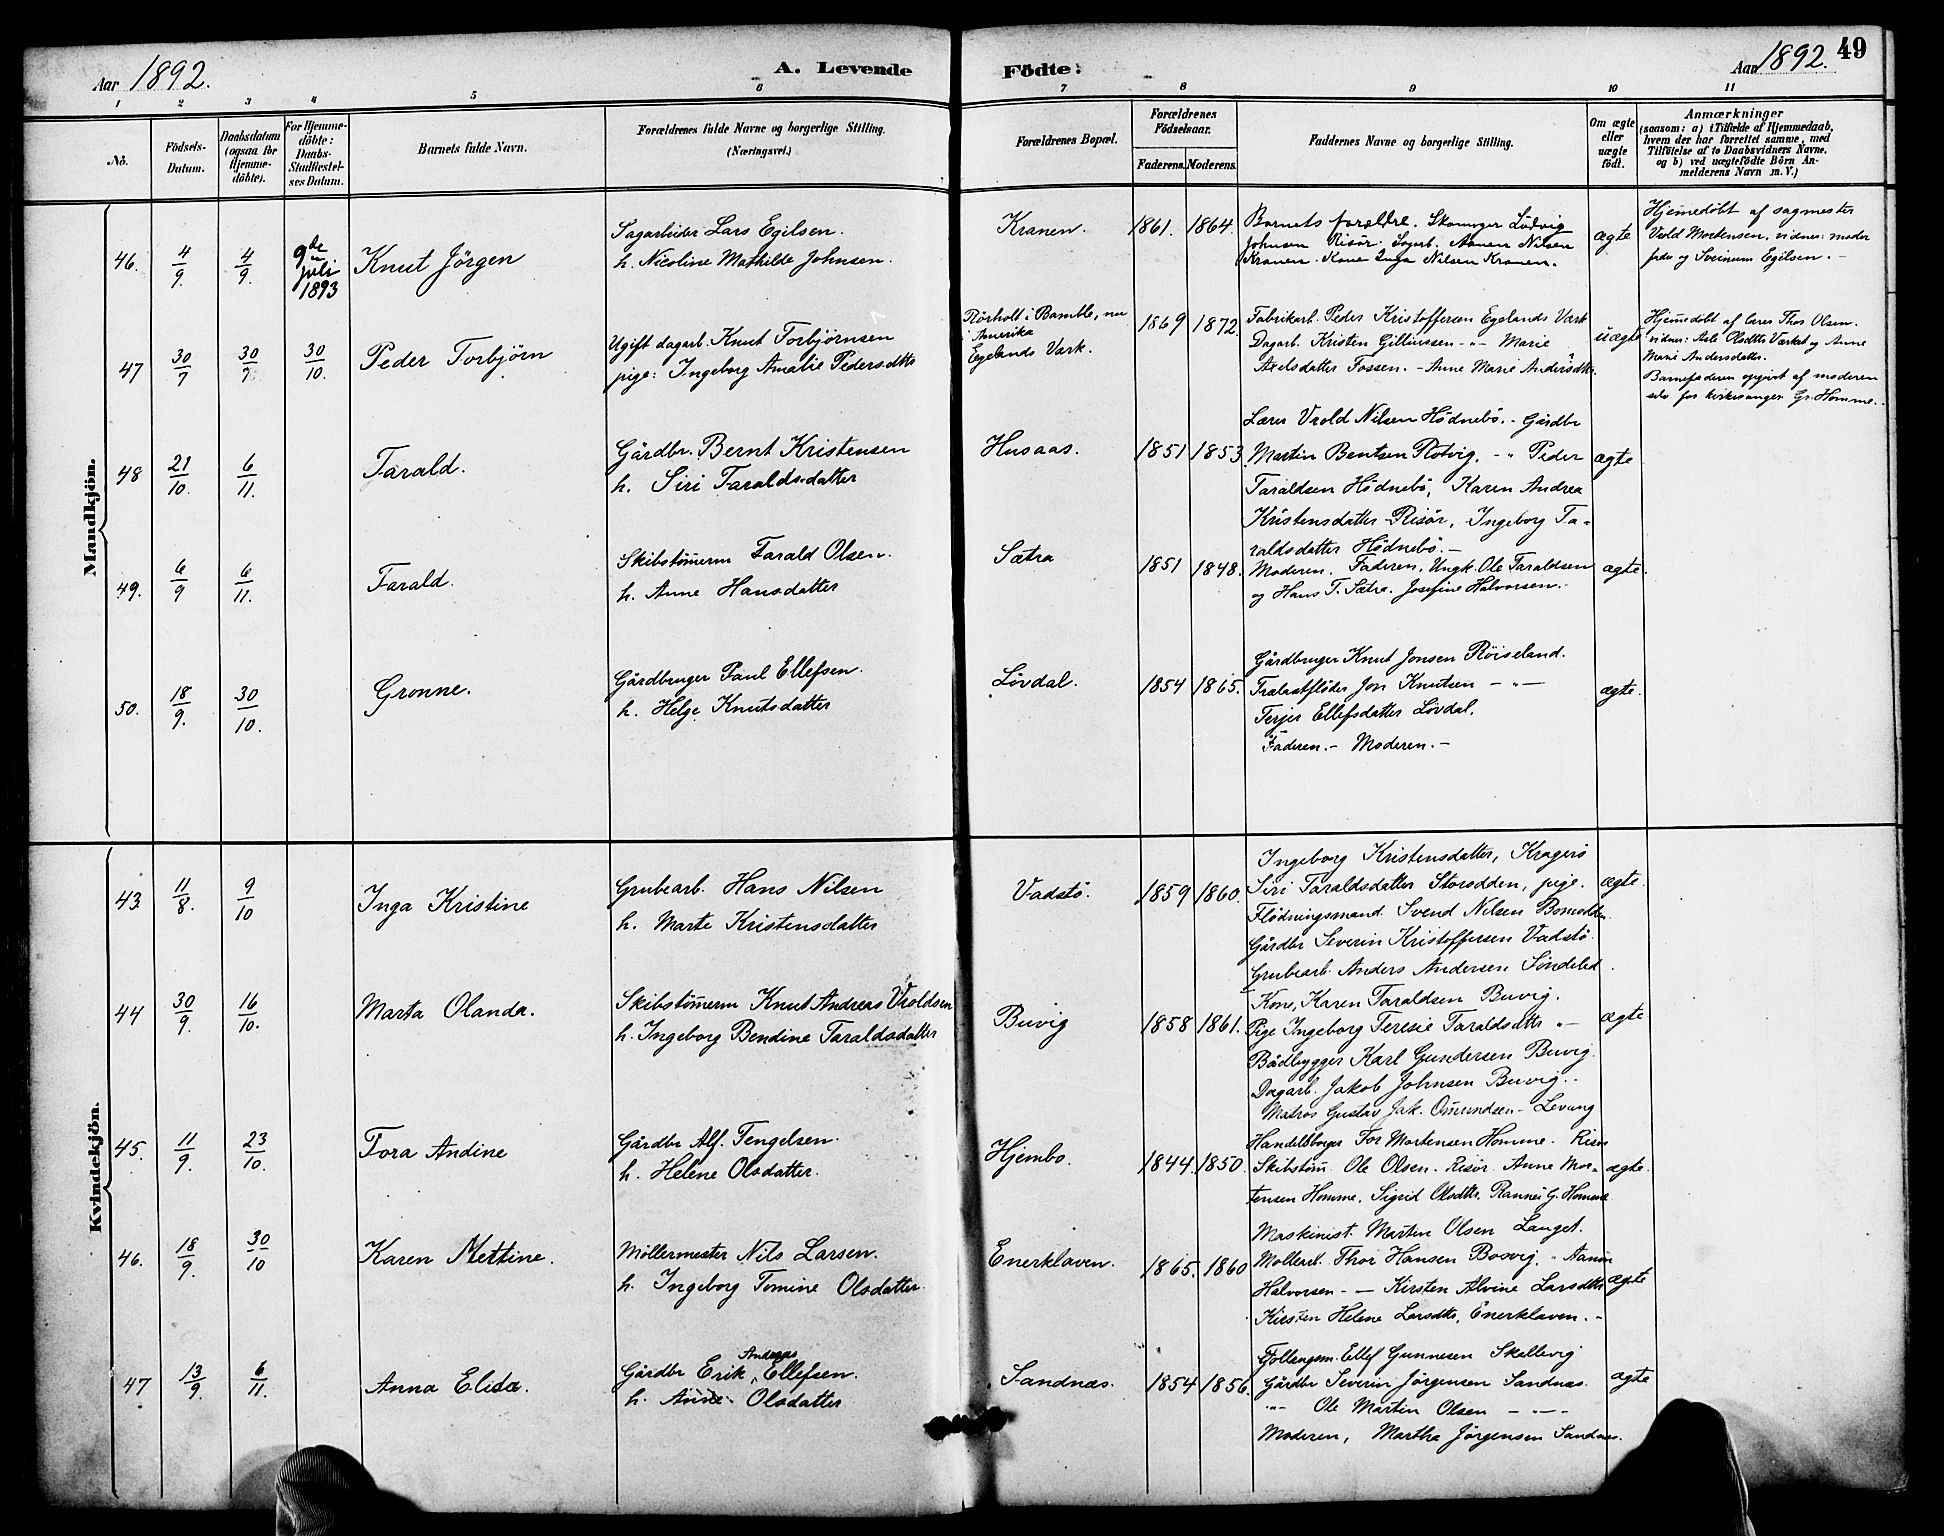 Aar 1892.
A. Levende
Födte:
Aar 1892.
49
1
2
3
4
5
6
7
8
9
10
11
No.
Födsels-
Datum.
Daabsdatum
(ogsaa for
Hjemme-
döbte).
For Hjemme-
döbte:
Daabs-
Stadfæstel-
ses Datum.
Barnets fulde Navn.
Forældrenes fulde Navne og borgerlige Stilling.
(Næringsvei.)
Forældrenes Bopæl.
Forældrenes
Födselsaar.
Faderens.
Moderens.
Faddernes Navne og borgerlige Stilling.
Om ægte
eller
uægte
födt.
Anmærkninger
(saasom: a) i Tilfælde af Hjemmedaab,
hvem der har forrettet samme, med
Tilföielse af to Daabsvidners Navne,
og b) ved uægtefödte Börn An-
melderens Navn m. V.)
Mandkjön.
46.
4/9.
4/9.
9de
juli
1893
Knut Jörgen
Sagarbeider Lars Egilsen.
h. Nicoline Mathilde Johnsen.
Kranen.
1861.
1864.
Barnets forældre. Ludvig
Johnsen Risör. Aanen Nilsen
Kranen. Kone Inga Nilsen Kranen.
ægte
Hjemedöbt af sagmester
Vrold Mortensen, vidner: moder
Egilsen.
47
30/7
30/7
30/10.
Peder Torbjörn
Ugift dagarb. Knut Torbjörnsen
pige: Ingeborg Amalie Pedersdtts
Rörholt i Bamble, nu
i Amerika
Egelands Værk.
1869
1872.
Fabrikarb. Peder Kristoffersen Egelands Værk
Dagarb. Kristen - " - Marie
Axelsdatter Fossen. - Anne Marie Andersdtt.
uægte
Hjemedöbt af lærer Thos Olsen.
vidner: Olsdtts Værket og Anne
Marie Andersdatter.
Barnefaderen opgivet af moderen
selv for kirkesanger Gr. Homme.
48
21/10.
6/11.
Tarald.
Gårdbr. Bernt Kristensen
h. Siri Taraldsdatter
Husaas.
1851
1853.
Lærer Vrold Nilsen Hödnebö. - Gårdbr
Martin Bentsen Rotvig. - " Peder
Taraldsen Hödnebö, Karen Andrea
Kristensdatter Risör, Ingeborg Ta-
raldsdatter Hödnebö. -
ægte
49.
6/9
6/11.
Tarald.
Skibstömerm Tarald Olsen.
h. Anne Hansdatter
Sætra
1851
1848.
Moderen. Faderen. Ungk. Ole Taraldsen
og Hans T. Sætra. Josefine Halvorsen.
ægte.
50.
18/9.
30/10.
Gronne.
Gårdbruger Paul Ellefsen.
h. Helge Knutsdatter
Lövdal.
1854
1865.
Gårdbruger Knut Jonsen Röiseland.
Jon Knutsen - " -
Terjer Ellefsdatter Lövdal.
Faderen. - Moderen. -
ægte.
Kvindekjön.
43.
11/8.
9/10
Inga Kristine
Grubearb. Hans Nilsen
h. Marte Kristensdatter
Vadstö.
1859
1860.
Ingeborg Kristensdatter, Kragerö
Siri Taraldsdatter Storodden, pige.
Flödningsmand. Svend Nilsen
Gårdbr Severin Kristoffersen Vadstö.
Grubearb. Anders Andersen Söndeled.
ægte.
44
30/9.
16/10.
Marta Olanda.
Skibstömerm Knut Andreas Vroldsen
h. Ingeborg Bendine Taraldsdatter
Buvig
1858
1861.
Kone, Karen Taraldsen Buvig.
Pige Ingeborg Teresie Taraldsdtts " -
Bådbygger Karl Gundersen Buvig.
Dagarb. Jakob Johnsen Buvig.
Matros Gustav Jak. Omundsen - Levang
ægte
45.
11/9.
23/10.
Tora Andine
Gårdbr Alf. Tengelsen.
h. Helene Olsdatter.
Hjembo.
1844.
1850.
Handelsborger Tor Mortensen Homme. Risör
Skibstöm. Ole Olsen. Risör. Anne Mor-
tensen Homme. Sigrid Olsdttr. G. Homme
ægte.
46.
18/9.
30/10
Karen Mettine.
Möllermester Nils Larsen.
h. Ingeborg Tomine Olsdatter.
Enerklaven.
1865.
1860
Maskinist. Martin Olsen Langet.
Möllearb. Thor Hansen Bosvig. "
Halvorsen - - Kirsten Alvine Larsdtts
Kirsten Helene Larsdtts, Enerklaven. -
ægte
47
13/9.
6/11.
Anna Elida.
Gårdbr Erik Andreas Ellefsen.
h. Anne Olsdatter
Sandnæs.
1854
1856.
Ellef Gunnesen Skallevig
Gårdbr Severin Jörgensen Sandnæs.
" - Ole Martin Olsen - " -
Moderen, Martha Jörgensen Sandnæs.
ægte